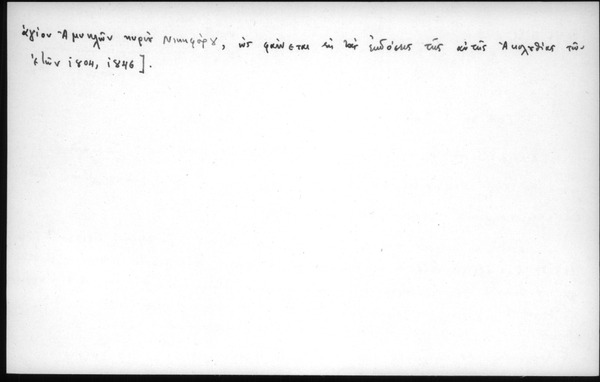 ἁγίου Ἀμυκλῶν κυρίου Νικηφόρου, ὡς φαίνεται ἐκ τὰς ἐκδόσεις τῆς αὐτῆς Ἀκολουθίας τῶν
ἐτῶν 1804, 1846].